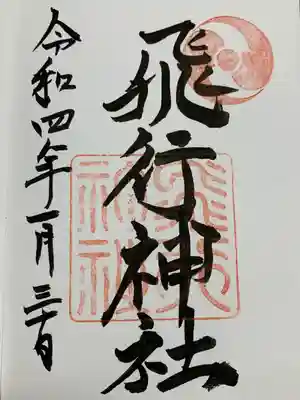 飛行神社
令和四年一月三十日
飛行
神社